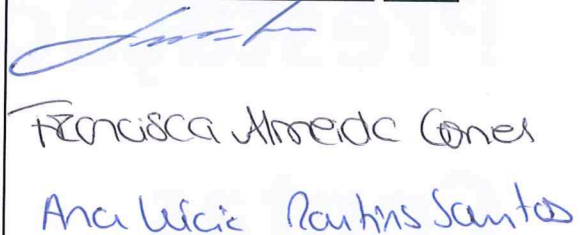 Francisca Almeida Gomes
Ana Lúcia Martins Santos